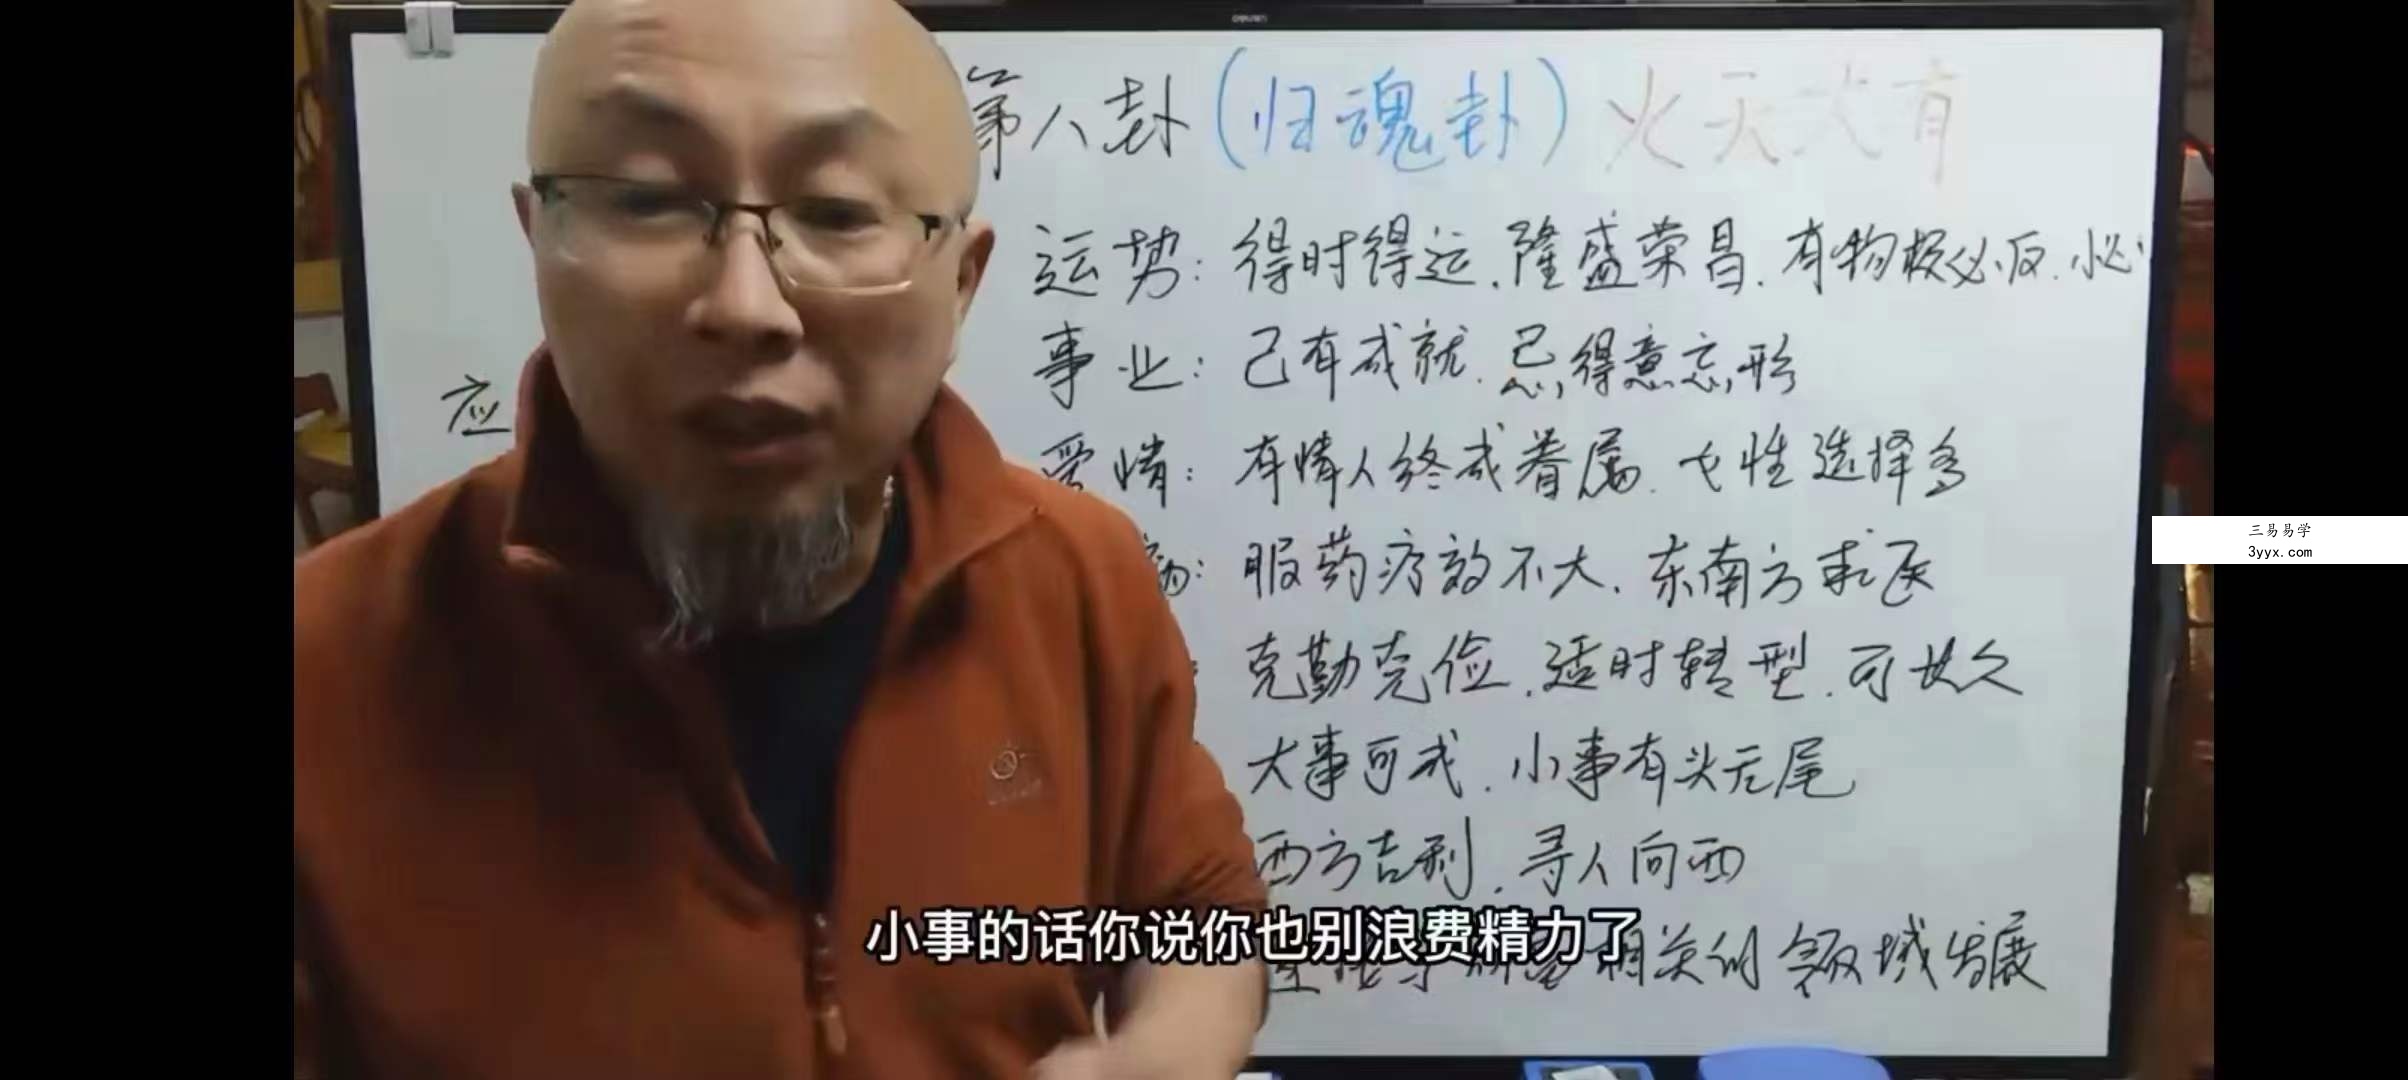 deli
第八卦(归魂卦)火天大有
运势:得时得运.隆盛荣昌.有物极必反.小心
事业:己有成就.忌得意忘形
应
爱情:有情人终成眷属.女性选择多
病:服药疗效不大.东南方求医
三易易学
3yyx.com
克勤克俭.适时转型.可长久
大事可成.小事有头无尾
西方吉利.寻人向西
小事的话你说你也别浪费精力了
相关的领域发展